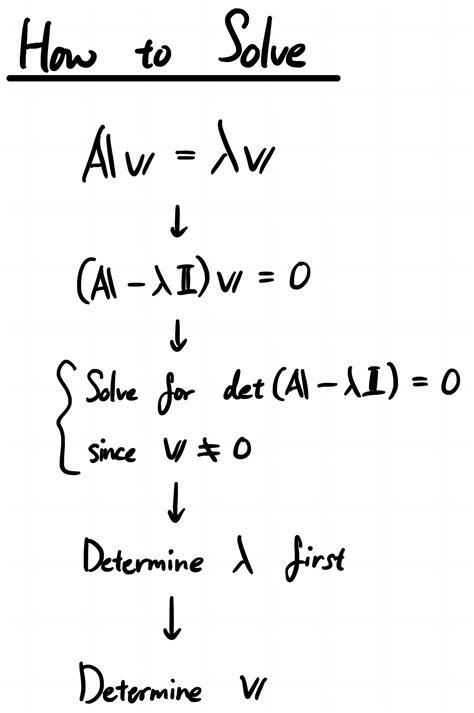 How to Solve
𝔸𝕧 = λ𝕧
↓
(𝔸 - λ𝕀)𝕧 = 0
↓
{ Solve for det(𝔸 - λ𝕀) = 0
since 𝕧 ≠ 0
↓
Determine λ first
↓
Determine 𝕧